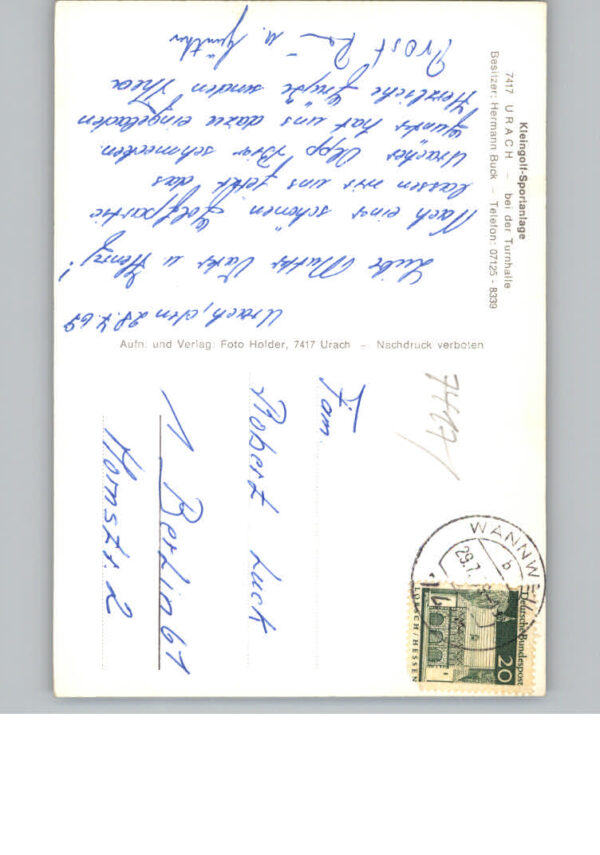 Kleingolf-Sportanlage
7417 URACH – bei der Turnhalle
Besitzer: Hermann Buck – Telefon: 07125 - 8339
Urach, den 28.7.69
Liebe Mutter Vater u. Henry!
Nach einer schönen Golfpartie
lassen wir uns jetzt das
Uracher Olpp Bier schmecken.
Günter hat uns dazu eingeladen
Herzliche Grüße senden Thea
Prost u. Günther
Aufn. und Verlag: Foto Holder, 7417 Urach – Nachdruck verboten
Fam.
Robert Luck
1 Berlin 61
Hornstr. 2
7417/
WANNWE
29.7.
b
Deutsche Bundespost
20
LORSCH/HESSEN